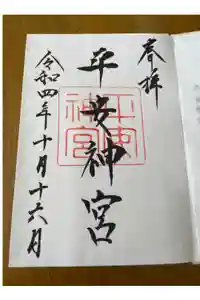 奉拝
平安神宮
平安神宮
令和四年十月十六日